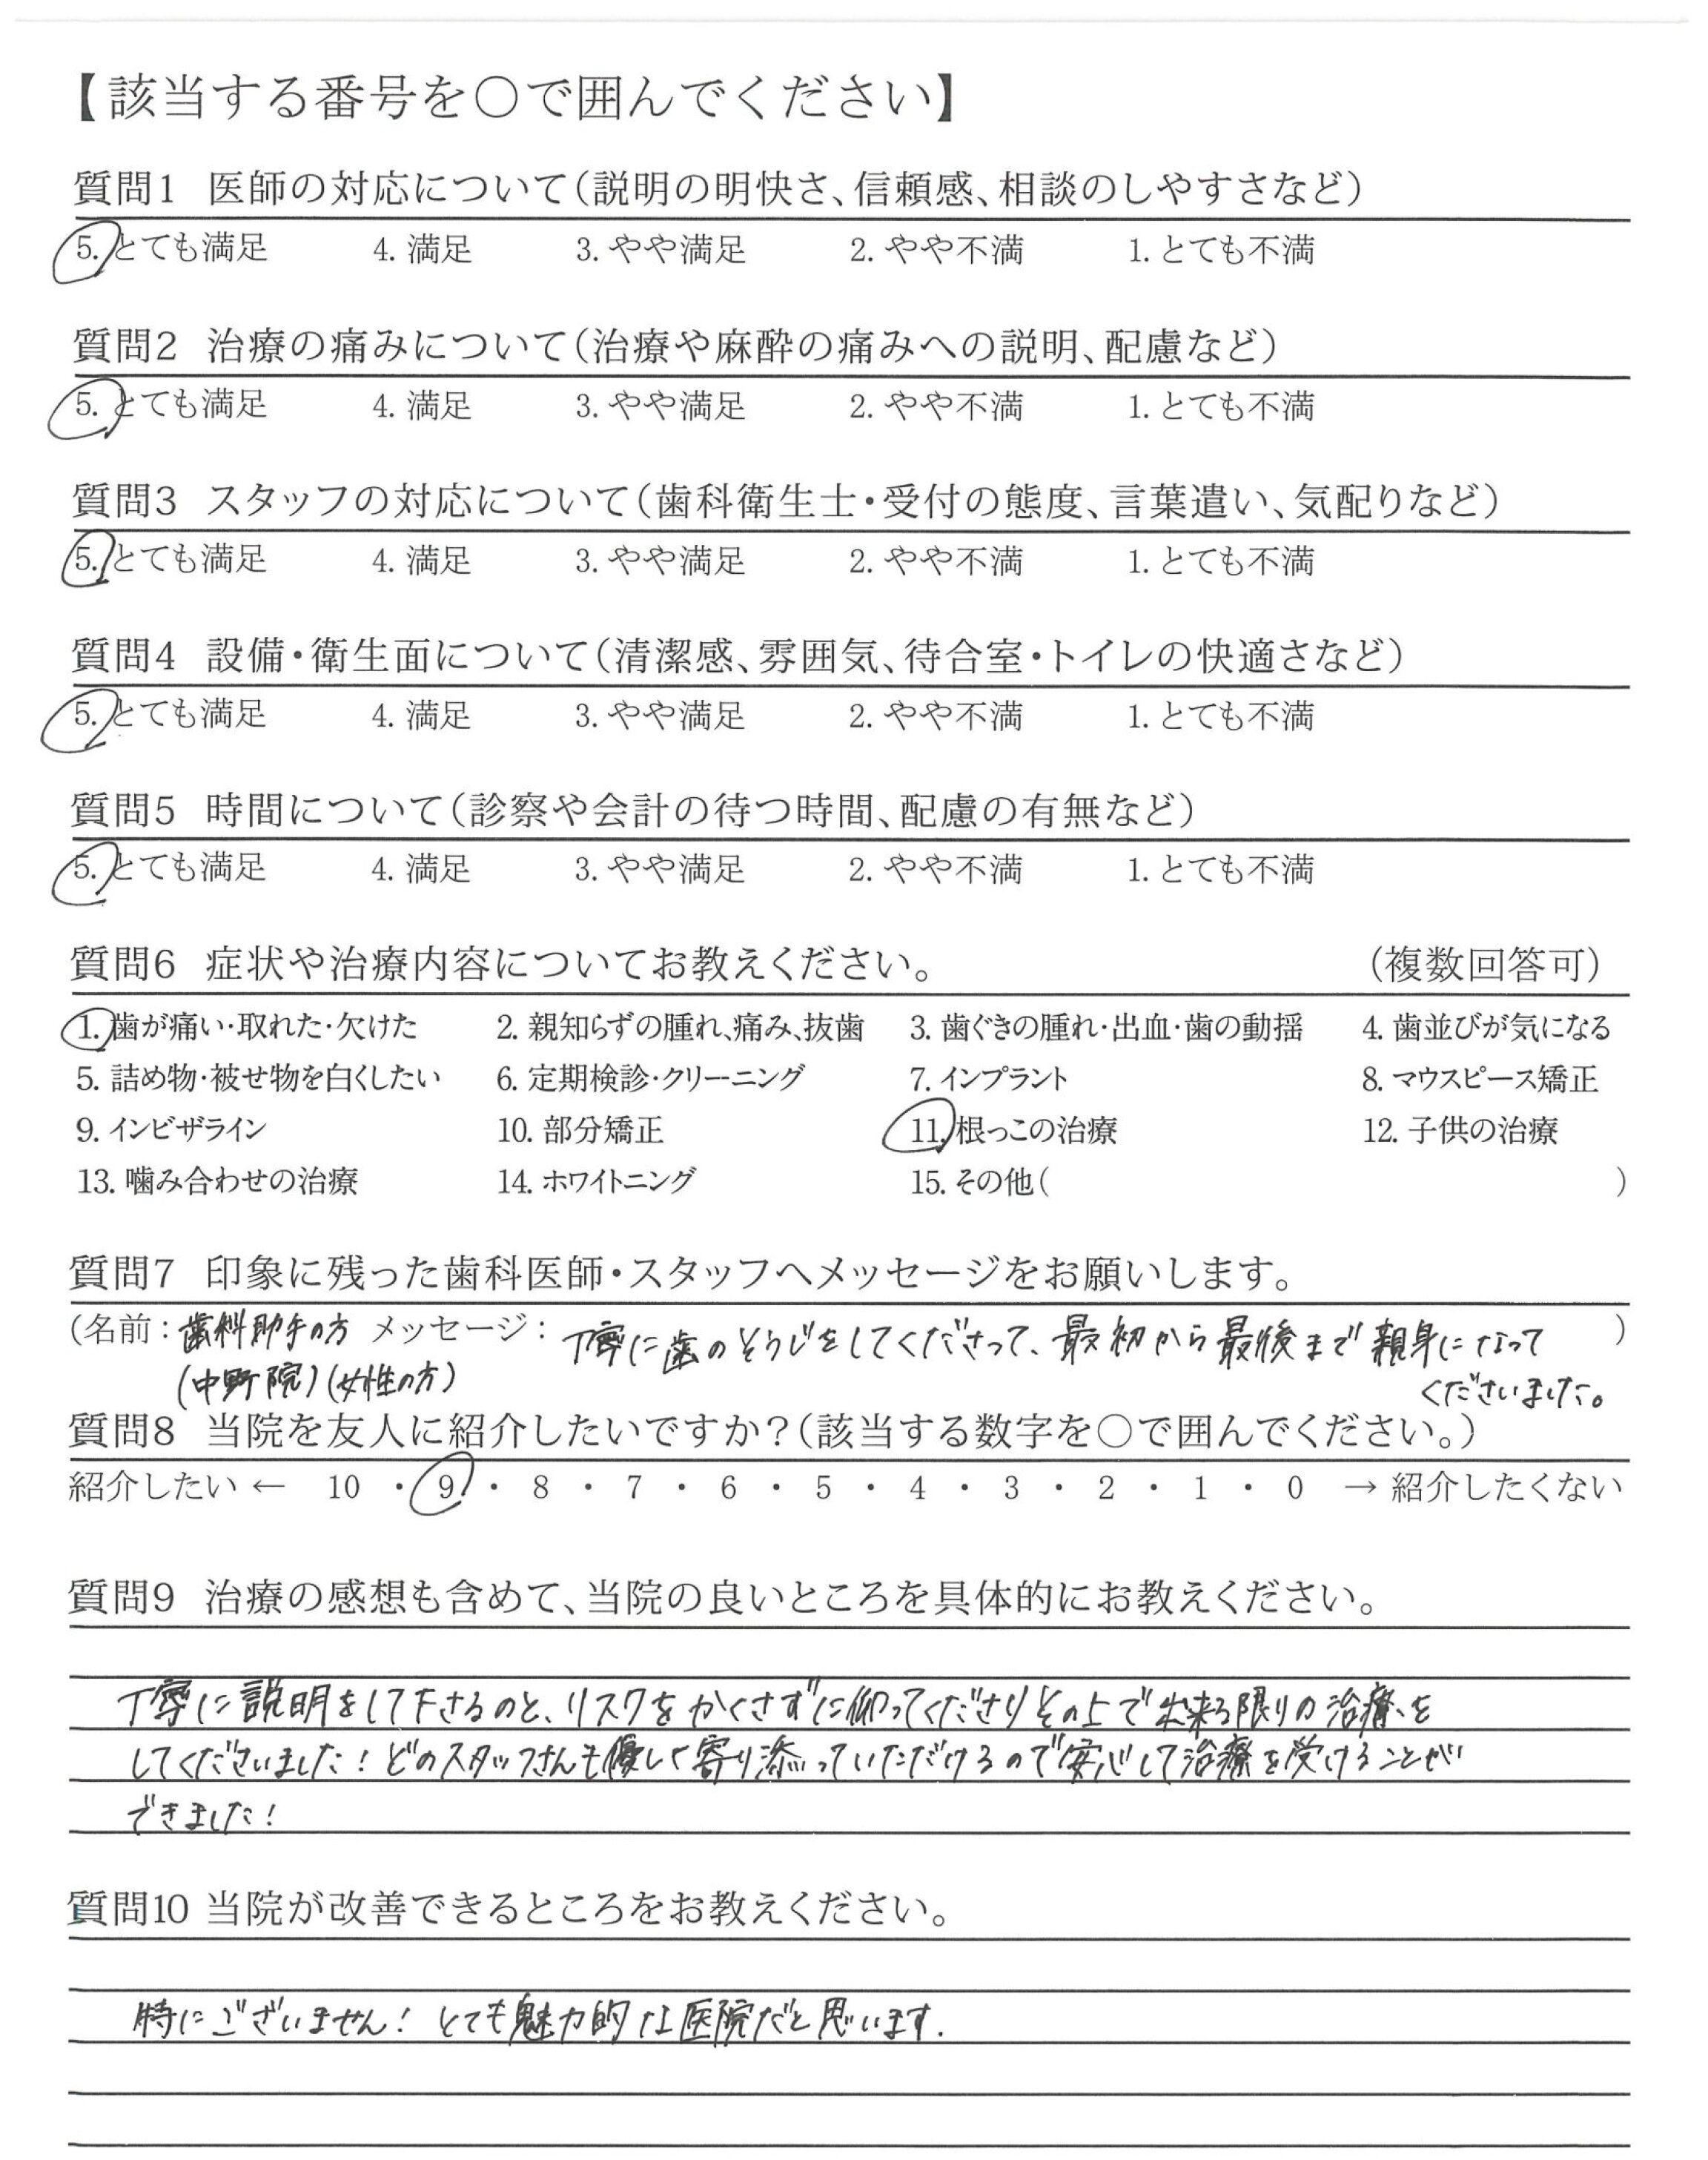 【該当する番号を○で囲んでください】
質問1 医師の対応について(説明の明快さ、信頼感、相談のしやすさなど)
5. とても満足 4. 満足 3. やや満足 2. やや不満 1. とても不満
質問2 治療の痛みについて(治療や麻酔の痛みへの説明、配慮など)
5. とても満足 4. 満足 3. やや満足 2. やや不満 1. とても不満
質問3 スタッフの対応について(歯科衛生士・受付の態度、言葉遣い、気配りなど)
5. とても満足 4. 満足 3. やや満足 2. やや不満 1. とても不満
質問4 設備・衛生面について(清潔感、雰囲気、待合室・トイレの快適さなど)
5. とても満足 4. 満足 3. やや満足 2. やや不満 1. とても不満
質問5 時間について(診察や会計の待つ時間、配慮の有無など)
5. とても満足 4. 満足 3. やや満足 2. やや不満 1. とても不満
質問6 症状や治療内容についてお教えください。 (複数回答可)
1. 歯が痛い・取れた・欠けた 2. 親知らずの腫れ、痛み、抜歯 3. 歯ぐきの腫れ・出血・歯の動揺 4. 歯並びが気になる
5. 詰め物・被せ物を白くしたい 6. 定期検診・クリーニング 7. インプラント 8. マウスピース矯正
9. インビザライン 10. 部分矯正 11. 根っこの治療 12. 子供の治療
13. 噛み合わせの治療 14. ホワイトニング 15. その他( )
質問7 印象に残った歯科医師・スタッフへメッセージをお願いします。
(名前：歯科助手の方 メッセージ：丁寧に歯のそうじをしてくださって、最初から最後まで親身になって )
(中野院)(女性の方) くださいました。
質問8 当院を友人に紹介したいですか？(該当する数字を○で囲んでください。)
紹介したい ← 10 ・ 9 ・ 8 ・ 7 ・ 6 ・ 5 ・ 4 ・ 3 ・ 2 ・ 1 ・ 0 → 紹介したくない
質問9 治療の感想も含めて、当院の良いところを具体的にお教えください。
丁寧に説明をして下さるのと、リスクをかくさずに仰ってくださりその上で出来る限りの治療を
してくださいました！どのスタッフさんも優しく寄り添っていただけるので安心して治療を受けることが
できました！
質問10 当院が改善できるところをお教えください。
特にございません！とても魅力的な医院だと思います.